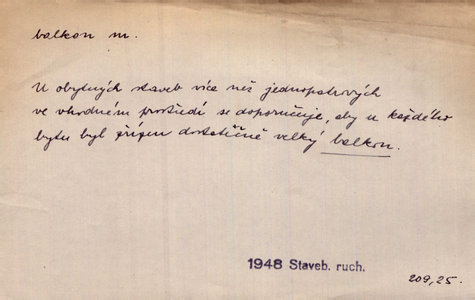 balkon m.
U obytných staveb více než jednopatrových
ve vhodném prostředí se doporučuje, aby u každého
bytu byl přízen dostatečně velký balkon.
1948 Staveb. ruch.
209,25.